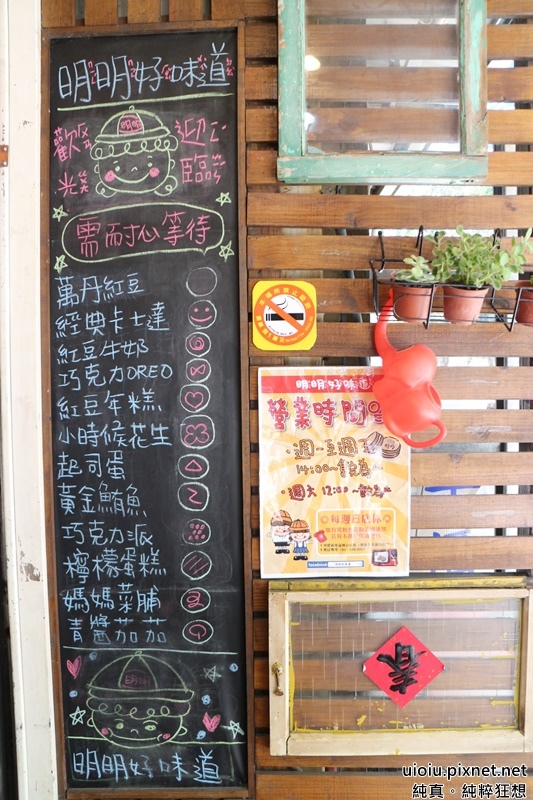 明明好味道
歡迎
光臨
明明
需耐心等待
萬丹紅豆
經典卡士達
紅豆牛奶
巧克力OREO
紅豆年糕
小時候花生
起司蛋
黃金鮪魚
巧克力派
檸檬蛋糕
媽媽菜脯
青醬茄茄
明明
明明好味道
明明好味道
營業時間
週一至週五
14:00~售完為止
週六 12:00~
每週日店休
facebook
春
uioiu.pixnet.net
純真。純粹狂想